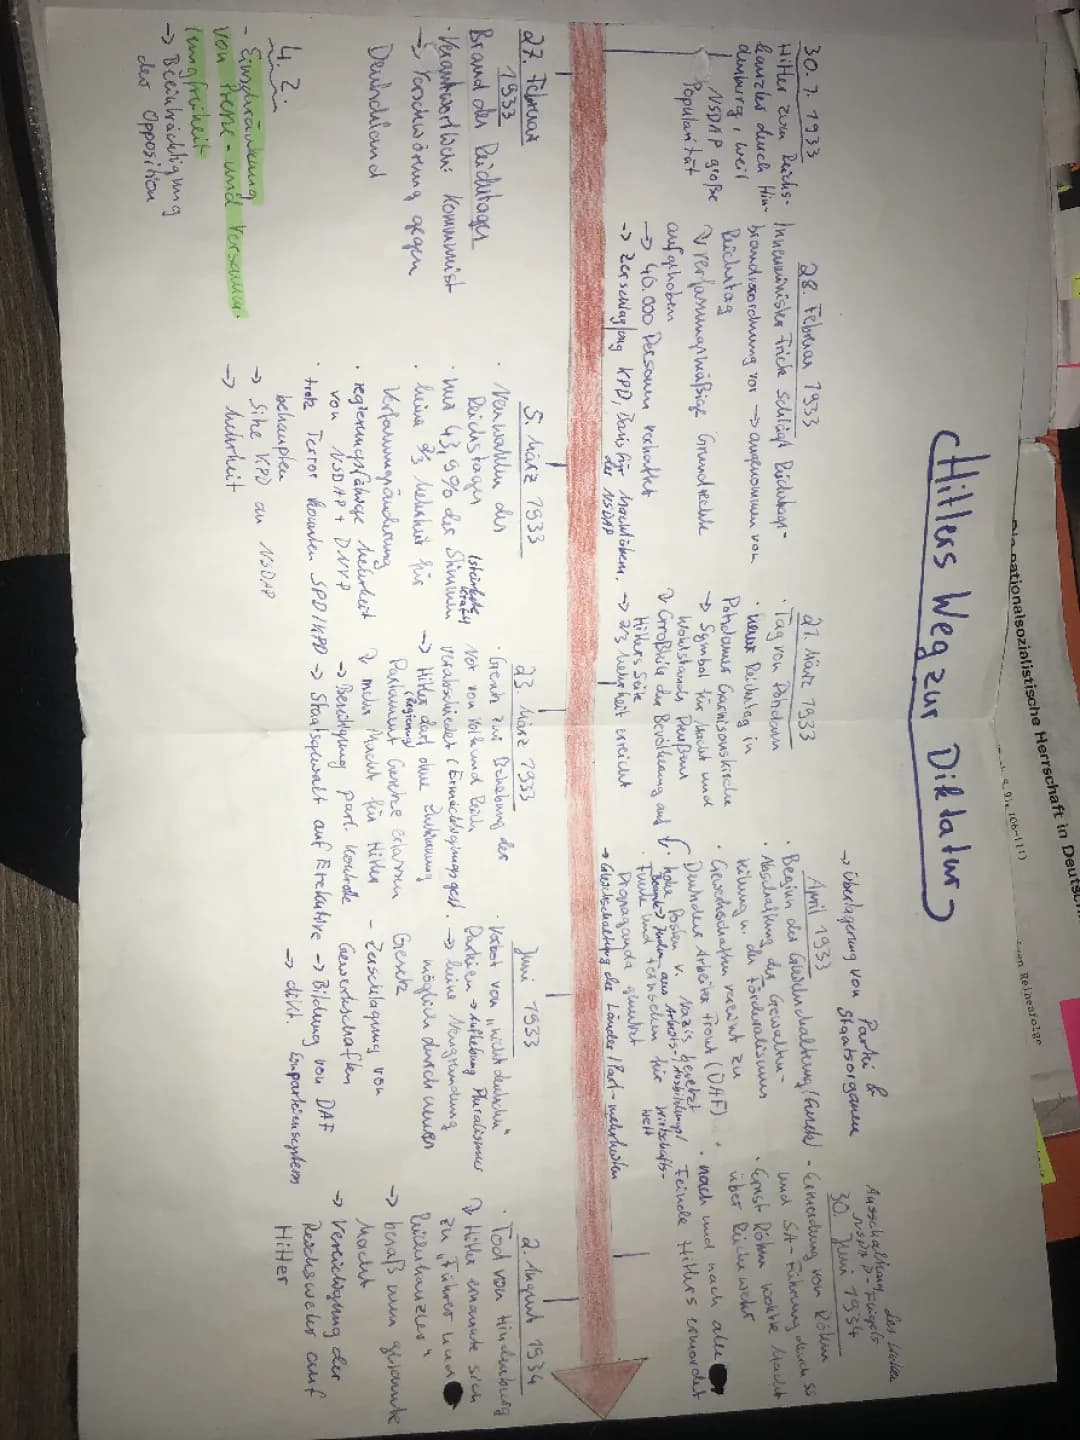 Die nationalsozialistische Herrschaft in Deutsch
Hitlers Weg zur Diktatur
30. 1. 1933
Hitler zum Reichs-
kanzler durch Hin-
denburg, weil
NSDAP große
Popularität
28. Februar 1933
Innenminister Frick schlägt Reichtags-
brandverordnung vor → angenommen von
Reichstag
↳ verfassungsmäßige Grundrechte
aufgehoben
→ 40.000 Personen verhaftet
→ Zerschlagung KPD, Basis für Machtüber.
der NSDAP
21. März 1933
· Tag von Potsdam
· neuer Reichstag in
Potsdamer Garnisonskirche
→ Symbol für Macht und
Wohlstands Preußens
↳ Großteil der Bevölkerung auf
Hitlers Seite
→ 2/3 Mehrheit erreicht
→ Überlagerung von Partei &
Staatsorganen
April 1933
· Beginn der Gleichschaltung (Gesetz)
· Abschaffung der Gewalten-
teilung u. des Föderalismus
· Gewerkschaften vereint zu
Deutscher Arbeiter Front (DAF)
· hohe Posten v. Nazis besetzt
Beamte → Juden aus Arbeits-/Ausbildung/
· Funk und Fernsehen für Wirtschafts-
welt
Propaganda genutzt
→ Gleichschaltung der Länder/Part-mehrheiten
Ausschaltung des linken
NSDAP-Flügels
30. Juni 1934
- Ermordung von Röhm
und SA-Führung durch SS
· Ernst Röhm wollte Macht
über Reichswehr
· nach und nach alle
Feinde Hitlers ermordet
27. Februar
1933
Brand des Reichtages
· Verantwortlich: Kommunist
→ Verschwörung gegen
Deutschland
4. 2.
- Einschränkung
von Presse- und Versamm-
lungfreiheit
→ Beeinträchtigung
der Opposition
5. März 1933
· Neuwahlen des
Reichstages
· nur 43,9% der Stimmen
· keine 2/3 Mehrheit für
Verfassungsänderung
· regierungsfähige Mehrheit
von NSDAP + DNVP
· trotz Terror konnten SPD/KPD
behaupten
→ Sitze KPD an NSDAP
→ Mehrheit
23. März 1933
· Gesetz zur Behebung der
Not von Volk und Reich
verabschiedet (Ermächtigungsges.)
→ Hitler darf ohne Zustimmung
Regierung
Parlament Gesetze erlassen
↳ mehr Macht für Hitler
→ Beseitigung parl. Kontrolle
→ Staatsgewalt auf Exekutive
Juni 1933
· Verbot von "nicht deutschen"
Parteien → Aufhebung Pluralismus
→ keine Neugründung
möglich durch neues
Gesetz
- Zerschlagung von
Gewerkschaften
→ Bildung von DAF
→ dikt. Einparteiensystem
2. August 1934
· Tod von Hindenburg
↳ Hitler ernannte sich
zu "Führer und
Reichskanzler"
→ besaß nun gesamte
Macht
→ Vereidigung der
Reichswehr auf
Hitler